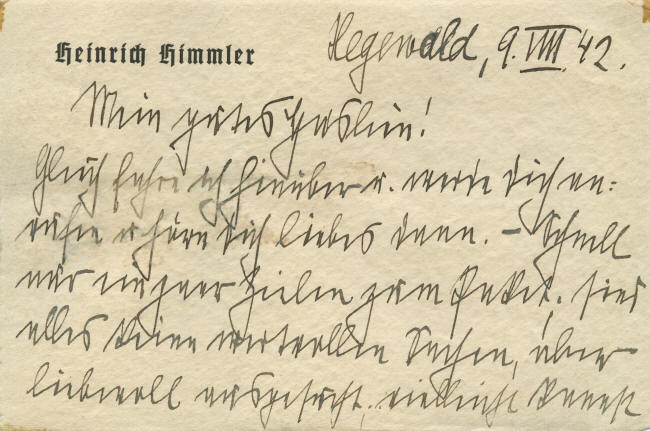 Heinrich Himmler
Hegewald, 9. VIII. 42.
Mein gutes Häslein!
Gleich fahre ich hinüber u. werde Dich an=
rufen u. höre Dich liebes dann. – Schnell
nur ein paar Zeilen zum Paket. sind
alles keine wertvollen Sachen, aber
liebevoll ausgesucht, vielleicht kannst